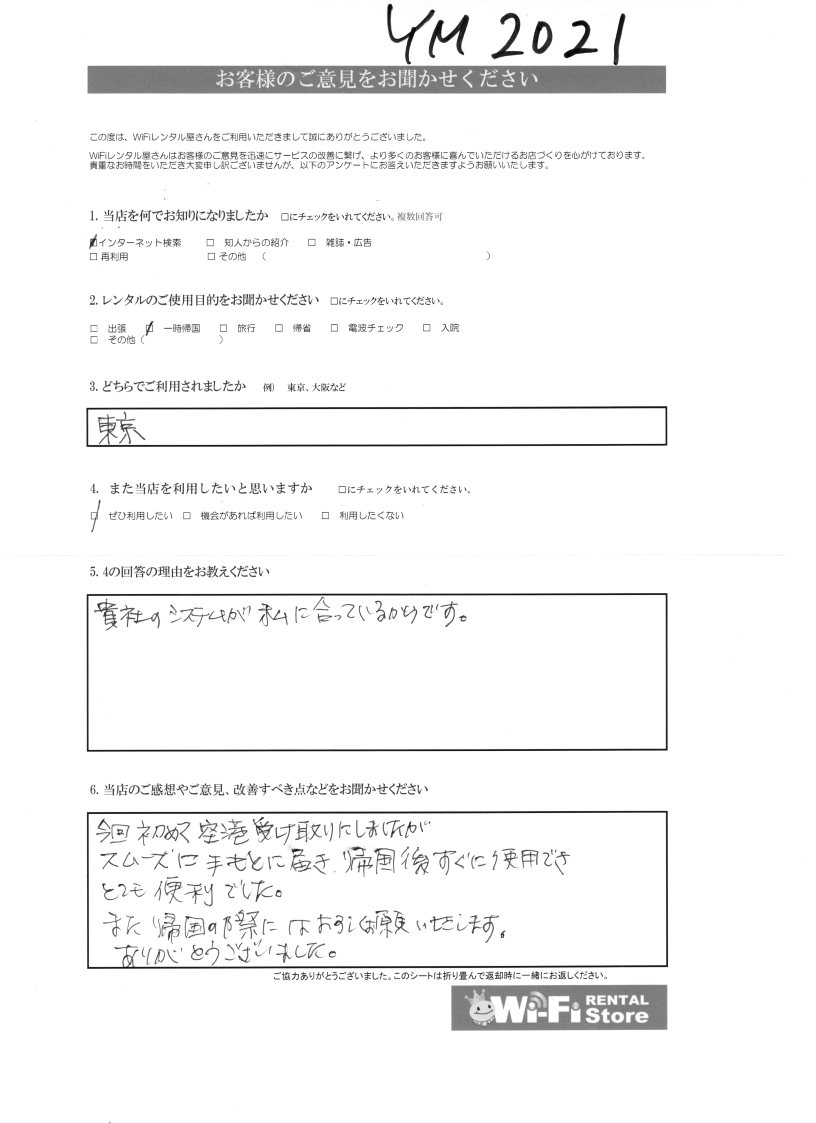 YM 2021
お客様のご意見をお聞かせください
この度は、WiFiレンタル屋さんをご利用いただきまして誠にありがとうございました。
WiFiレンタル屋さんはお客様のご意見を迅速にサービスの改善に繋げ、より多くのお客様に喜んでいただけるお店づくりを心がけております。
貴重なお時間をいただき大変申し訳ございませんが、以下のアンケートにお答えいただきますようお願いいたします。
1. 当店を何でお知りになりましたか □にチェックをいれてください。複数回答可
☑インターネット検索 □ 知人からの紹介 □ 雑誌・広告
□ 再利用 □ その他 ( )
2. レンタルのご使用目的をお聞かせください □にチェックをいれてください。
□ 出張 ☑ 一時帰国 □ 旅行 □ 帰省 □ 電波チェック □ 入院
□ その他 ( )
3. どちらでご利用されましたか 例) 東京、大阪など
東京
4. また当店を利用したいと思いますか □にチェックをいれてください。
☑ ぜひ利用したい □ 機会があれば利用したい □ 利用したくない
5. 4の回答の理由をお教えください
貴社のシステムが私に合っているからです。
6. 当店のご感想やご意見、改善すべき点などをお聞かせください
今回初めて空港受け取りにしましたが
スムーズに手もとに届き、帰国後すぐに使用でき
とても便利でした。
また帰国の際にはよろしくお願いいたします。
ありがとうございました。
ご協力ありがとうございました。このシートは折り畳んで返却時に一緒にお返しください。
Wi-Fi RENTAL Store